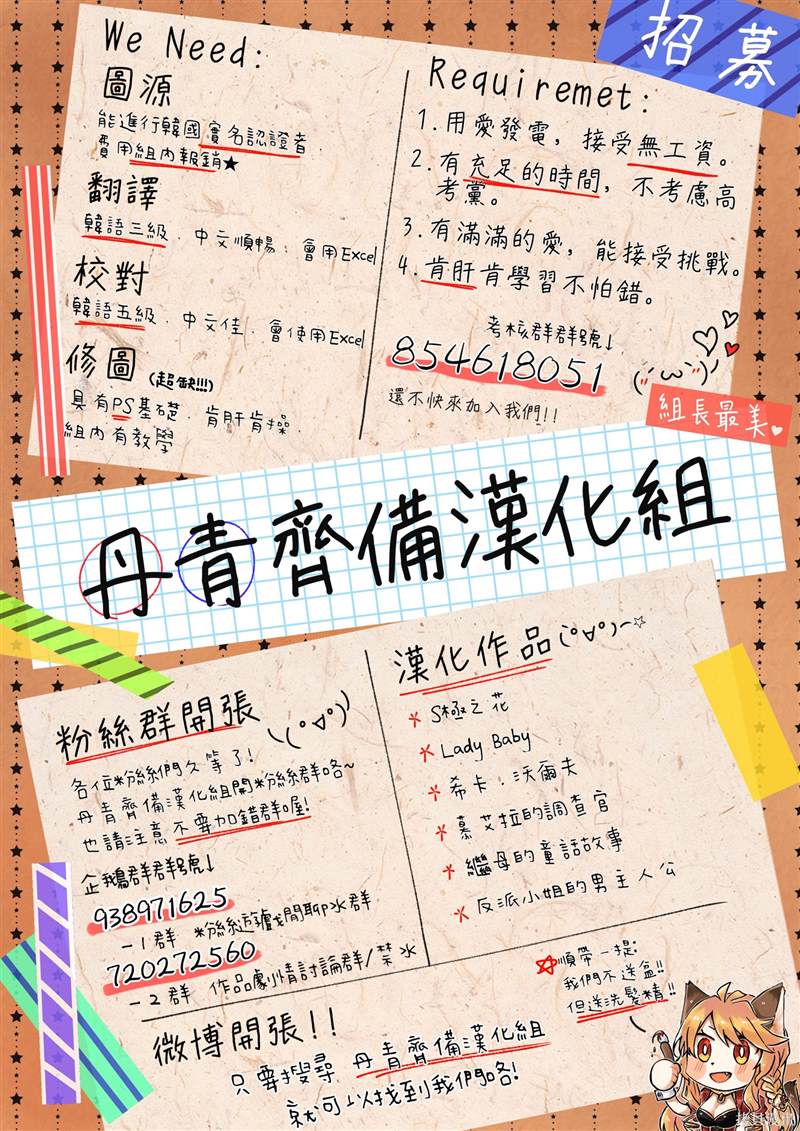 招募
We Need:
圖源
能進行韓國實名認證者.
費用組內報銷★
翻譯
韓語三級．中文順暢．會用Excel
校對
韓語五級．中文佳．會使用Excel
修圖(超缺!!!)
具有PS基礎．肯肝肯操．
組內有教學
Requiremet:
1.用愛發電，接受無工資。
2.有充足的時間，不考慮高
考黨。
3.有滿滿的愛，能接受挑戰。
4.肯肝肯學習不怕錯。
考核群群號↓
854618051
還不快來加入我們!!
組長最美♥
丹青齊備漢化組
粉絲群開張
各位粉絲們久等了!
丹青齊備漢化組開粉絲群咯~
也請注意不要加錯群喔!
企鵝群群號↓
938971625
－1群 粉絲遊戲閒聊水群
720272560
－2群 作品劇情討論群/禁水
漢化作品
S極之花
Lady Baby
希卡．沃爾夫
慕艾拉的調查官
繼母的童話故事
反派小姐的男主人公
順帶一提:
我們不送盆!!
但送洗髮精!!
微博開張!!
只要搜尋 丹青齊備漢化組
就可以找到我們咯!